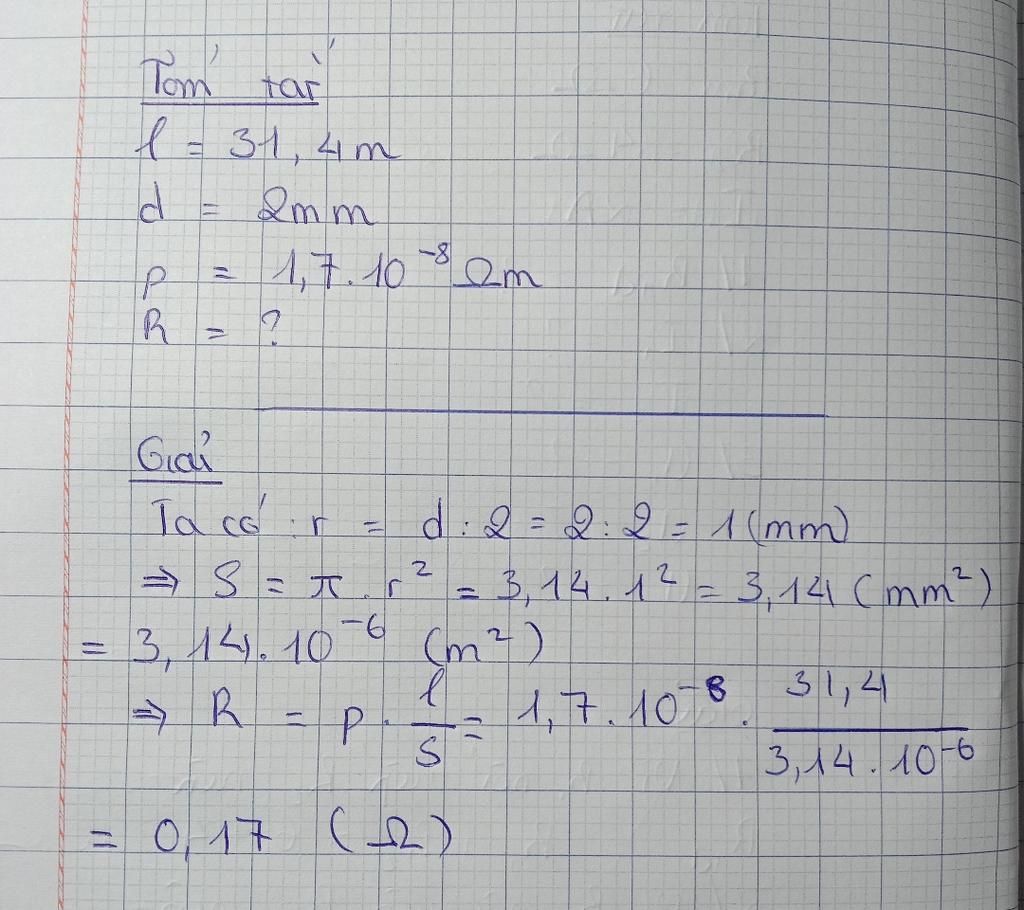 Tóm tắt
l = 31,4m
d = 2mm
p = 1,7.10⁻⁸ Ωm
R = ?
Giải
Ta có : r = d : 2 = 2 : 2 = 1 (mm)
⇒ S = π . r² = 3,14 . 1² = 3,14 (mm²)
= 3,14.10⁻⁶ (m²)
⇒ R = p . l/S = 1,7.10⁻⁸ . 31,4/3,14.10⁻⁶
= 0,17 (Ω)